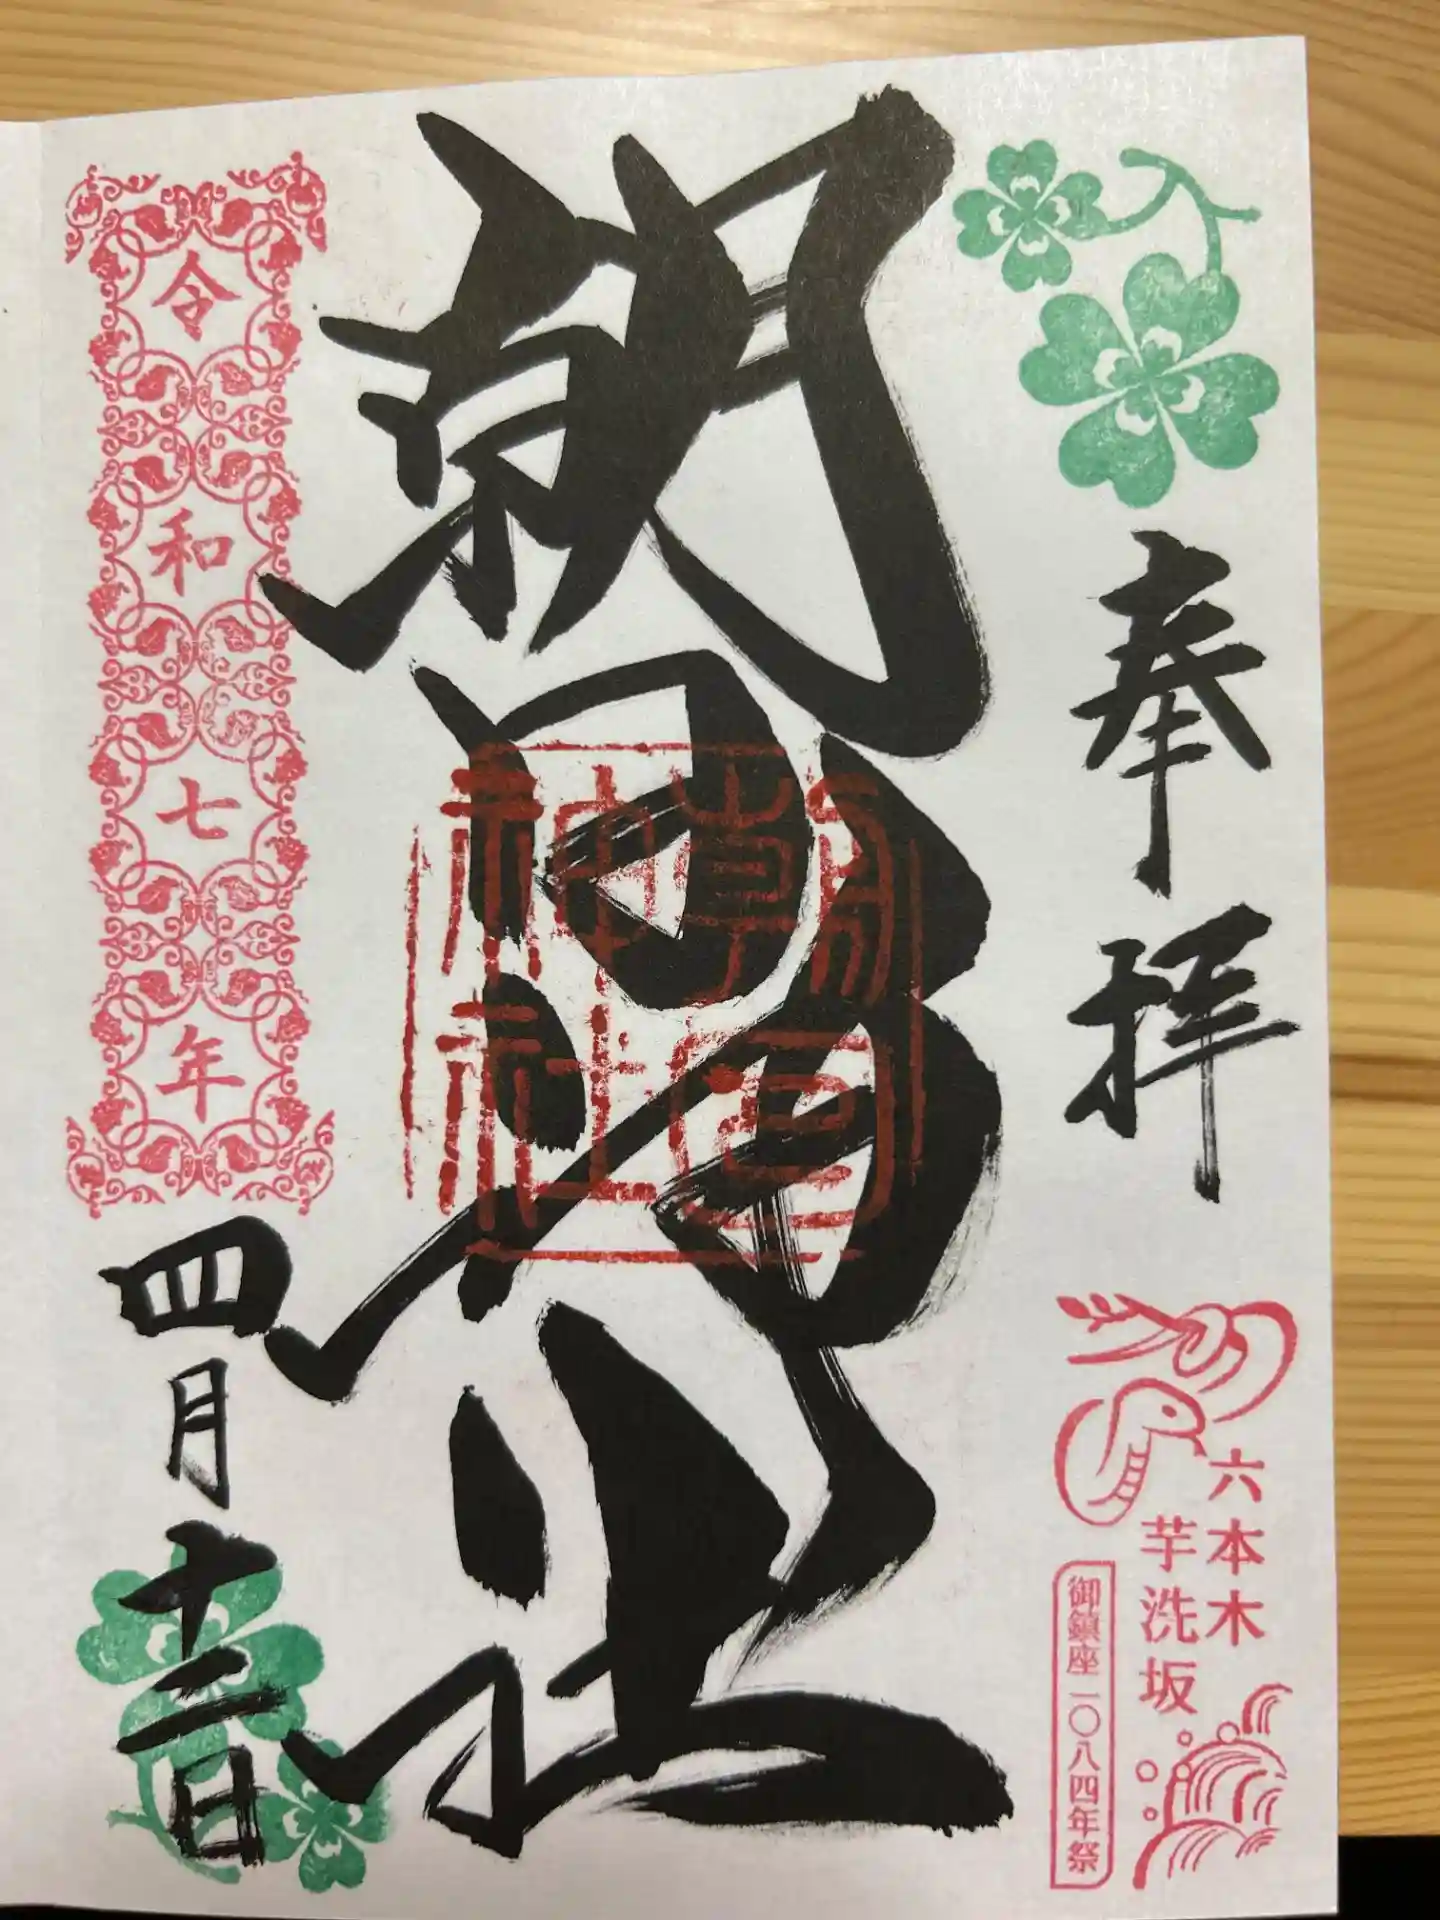 奉拝
六本木
芋洗坂
御鎮座一〇八四年祭
朝日神社
朝日神社
令和七年
四月十二日